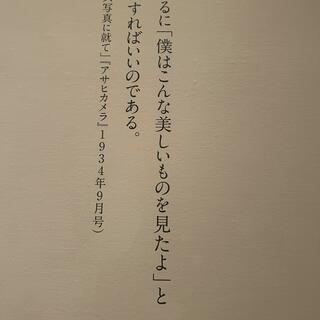 るに「僕はこんな美しいものを見たよ」と
すればいいのである。
写真に就て」『アサヒカメラ』1934年9月号）